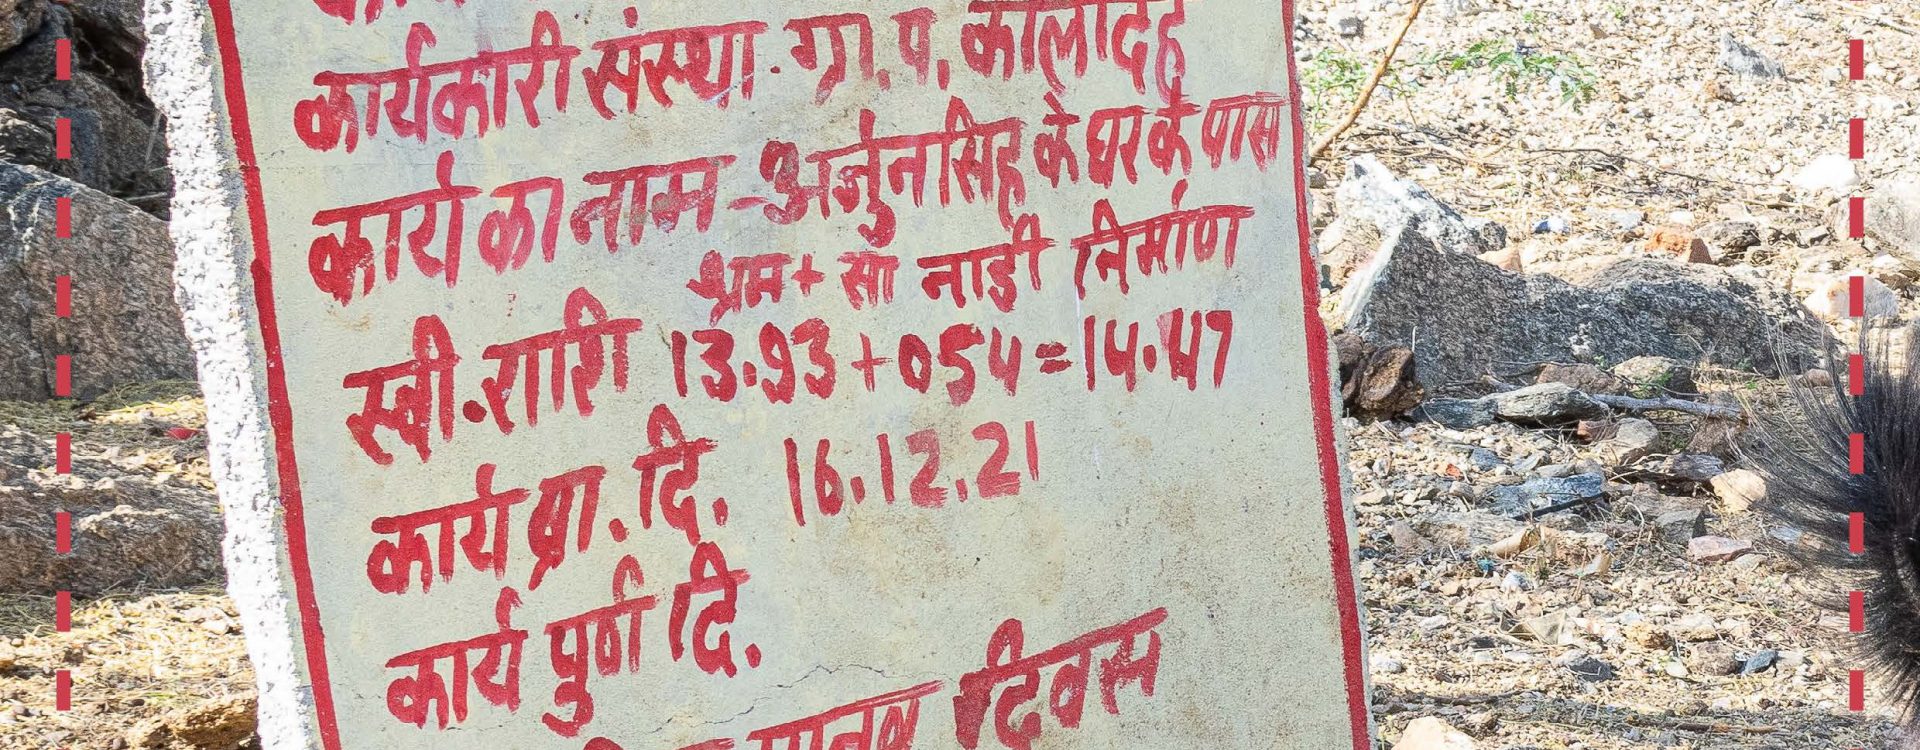 कार्यकारी संस्था. ग्रा. प. कालादेह
कार्य का नाम - अर्जुनसिंह के घर के पास
श्रम + सा नाडी निर्माण
स्वी. राशि 13.93 + 054 = 14.47
कार्य प्रा. दि. 16.12.21
कार्य पुर्ण दि.
मानव दिवस